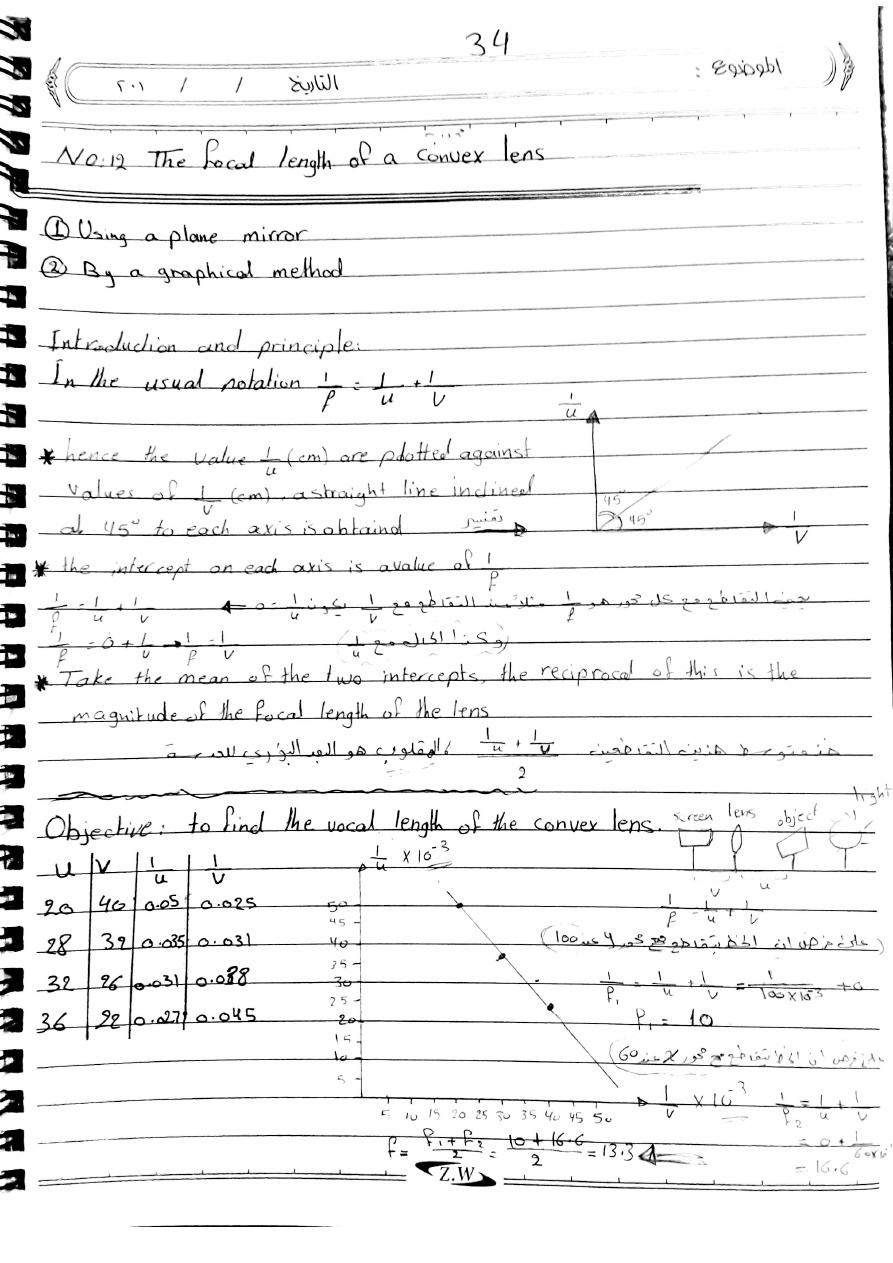 34
الموضوع :
التاريخ / / ٢٠١
No:12 The focal length of a convex lens
① Using a plane mirror
② By a graphical method
Introduction and principle:
In the usual notation 1/f = 1/u + 1/v
1/u
* hence the value 1/u (cm) are pdotted against
values of 1/v (cm), a straight line inclined
at 45° to each axis is obtaind تفسير
45°
45°
1/v
* the intercept on each axis is avalue of 1/f
نقطة التقاطع مع كل محور هو 1/f مثلا عند التقاطع مع 1/v يكون 1/u = 0 ← 1/f = 1/u + 1/v
1/f = 0 + 1/v → 1/f = 1/v (وكذا الحال مع 1/u)
* Take the mean of the two intercepts, the reciprocal of this is the
magnitude of the focal length of the lens
متوسط هذين التقاطعين (1/u + 1/v)/2 والمقلوب هو البعد البؤري للعدسة
Objective: to find the vocal length of the convex lens.
screen lens object light
v u
u v 1/u 1/v
20 40 0.05 0.025
28 32 0.035 0.031
32 26 0.031 0.038
36 22 0.027 0.045
1/u × 10⁻³
50
45
40
35
30
25
20
15
10
5
5 10 15 20 25 30 35 40 45 50
1/v × 10⁻³
1/f = 1/u + 1/v
(على فرض ان الخط يتقاطع مع محور y عند 100)
1/f₁ = 1/u + 1/v = 1/100×10⁻³ + 0
f₁ = 10
على فرض ان الخط يتقاطع مع محور x عند 60)
1/f₂ = 1/u + 1/v
= 0 + 1/60×10
= 16.6
f = (f₁ + f₂)/2 = (10 + 16.6)/2 = 13.3
Z.W